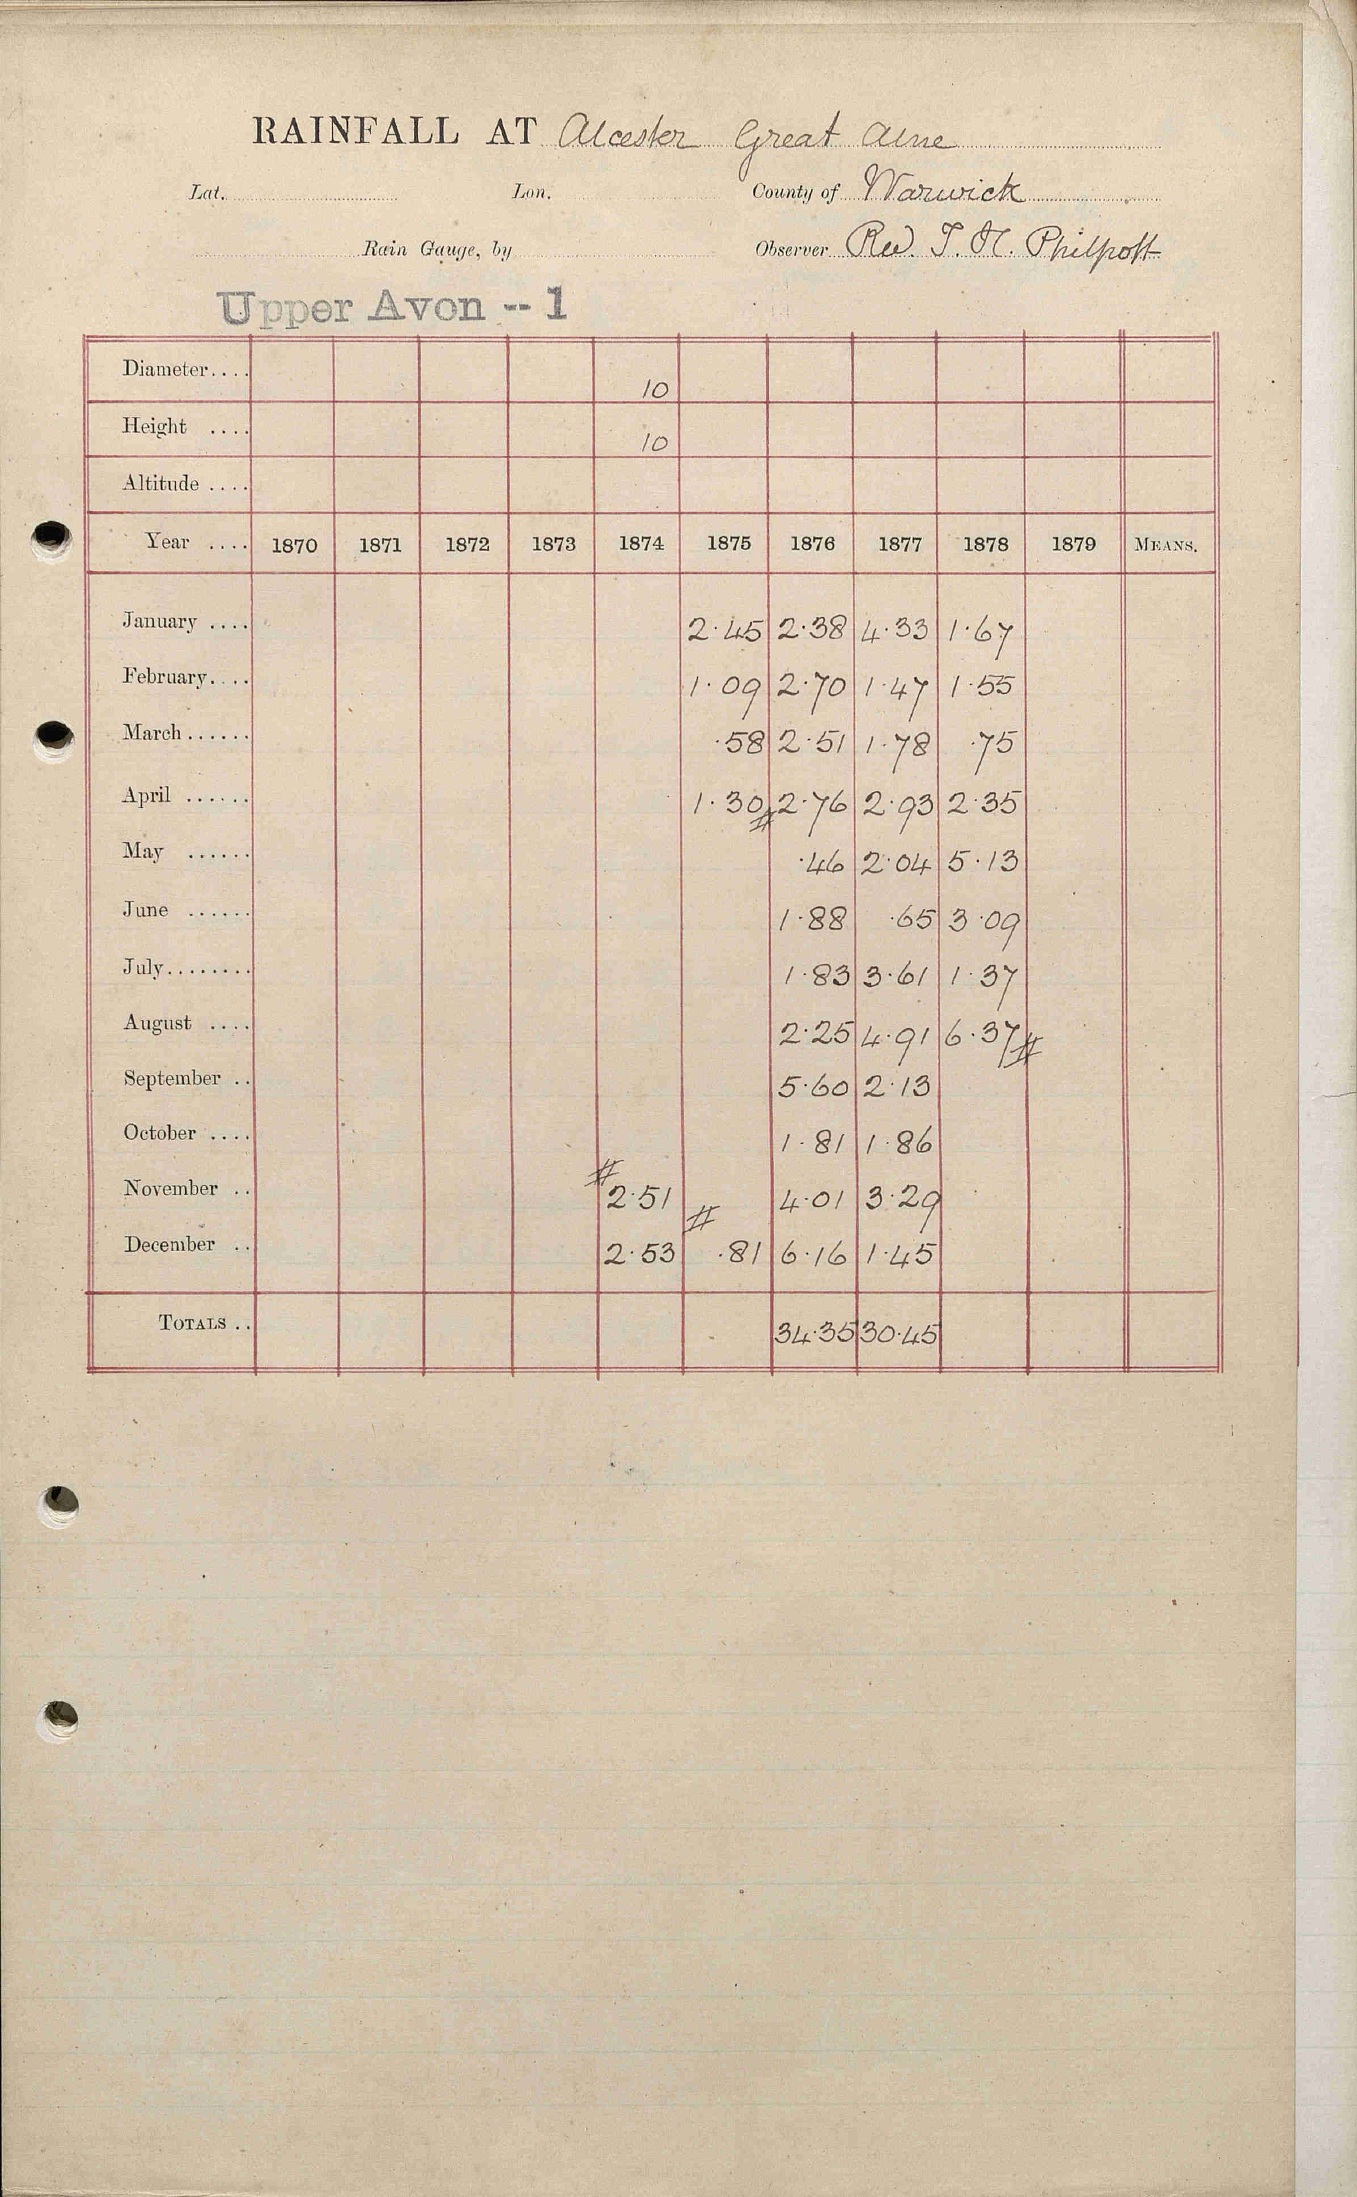 RAINFALL AT Alcester Great Alne
Lat. Lon. County of Warwick
Rain Gauge, by Observer Rev. T. H. Philpott
Upper Avon -- 1
Diameter.... 10
Height .... 10
Altitude ....
Year .... 1870 1871 1872 1873 1874 1875 1876 1877 1878 1879 MEANS.
January .... 2·45 2·38 4·33 1·67
February.... 1·09 2·70 1·47 1·55
March...... ·58 2·51 1·78 ·75
April ...... 1·30 # 2·76 2·93 2·35
May ...... ·46 2·04 5·13
June ...... 1·88 ·65 3·09
July........ 1·83 3·61 1·37
August .... 2·25 4·91 6·37 #
September .. 5·60 2·13
October .... 1·81 1·86
November .. # 2·51 4·01 3·29
December .. 2·53 # ·81 6·16 1·45
TOTALS .. 34·35 30·45